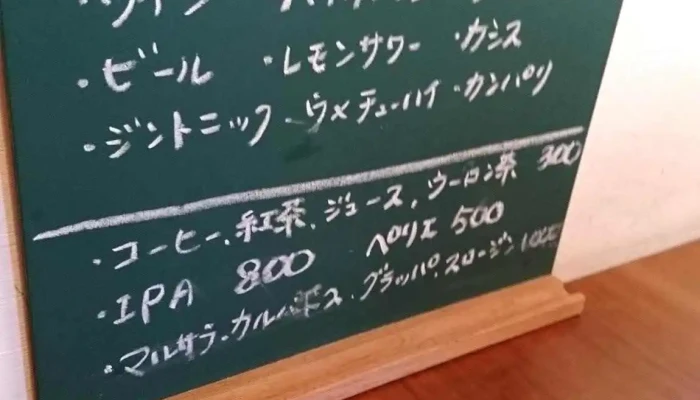 ・ビール ・レモンサワー ・カシス
・ジントニック ・ウメチューハイ ・カンパリ
・コーヒー、紅茶、ジュース、ウーロン茶 300
・IPA 800 ペリエ 500
・マルサラ、カルバドス、グラッパ、スロージン 1000